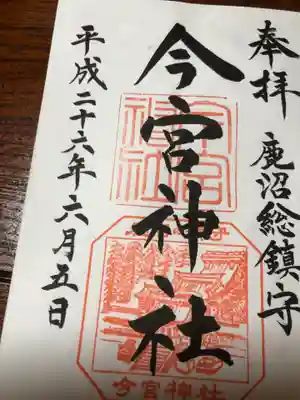 奉拝
鹿沼総鎮守
今宮神社
平成二十六年六月五日
今宮神社